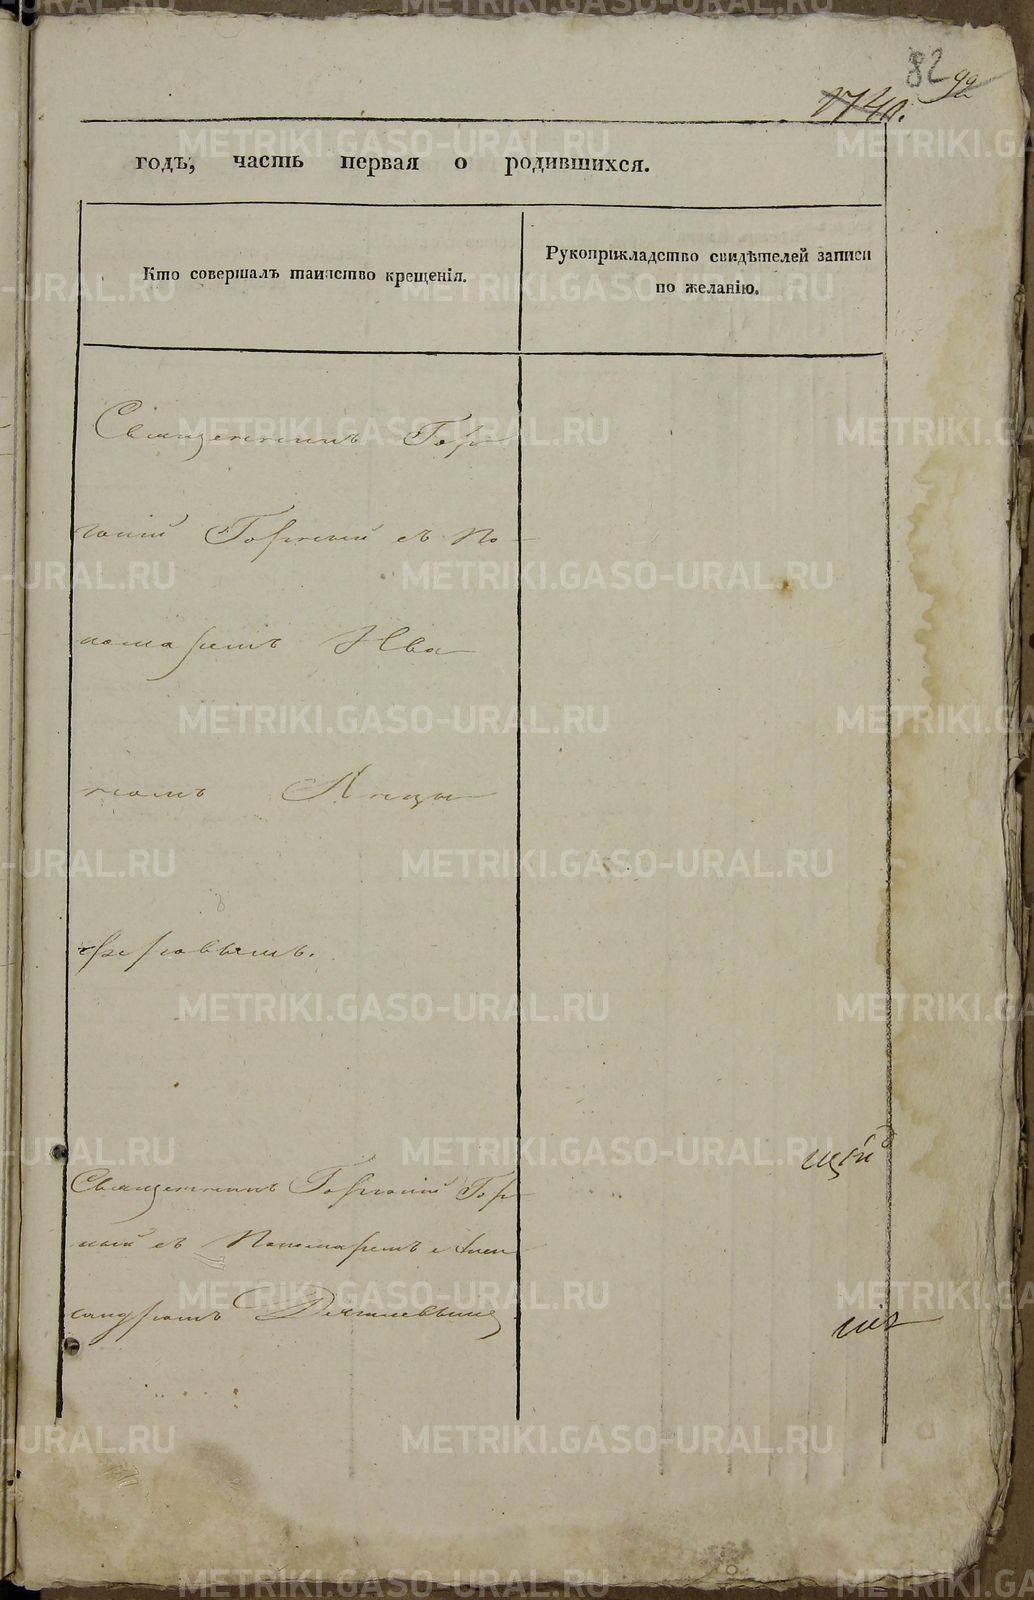 82 99
1740.
годъ, часть первая о родившихся.
Кто совершалъ таинство крещенія.
Рукоприкладство свидѣтелей записи
по желанію.
Священникъ Гор
Горный съ По-
номаремъ Ива
номъ Анцы
феровымъ.
Священникъ Гор
ный съ Пономаремъ Алек
сандромъ
METRIKI.GASO-URAL.RU